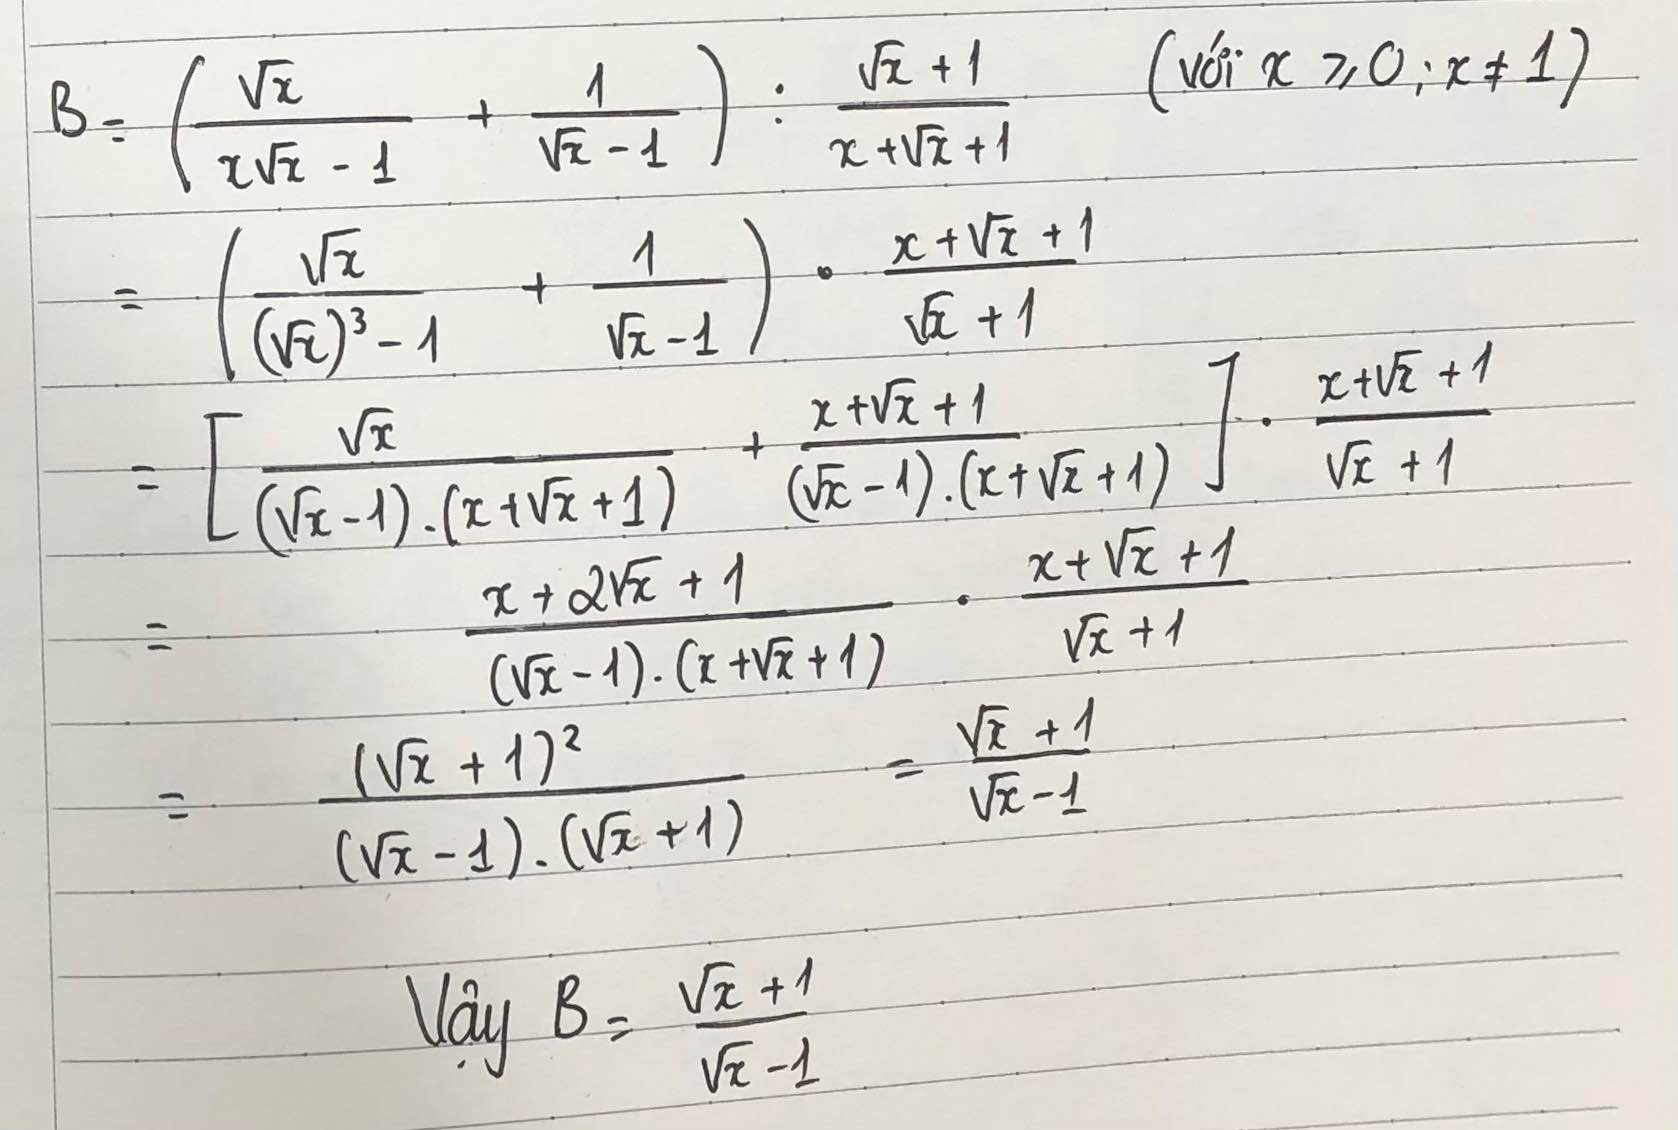 B = (√x / (x√x - 1) + 1 / (√x - 1)) : (√x + 1) / (x + √x + 1) (với x ⩾ 0 ; x ≠ 1)
= (√x / ((√x)³ - 1) + 1 / (√x - 1)) . (x + √x + 1) / (√x + 1)
= [√x / ((√x - 1).(x + √x + 1)) + (x + √x + 1) / ((√x - 1).(x + √x + 1))] . (x + √x + 1) / (√x + 1)
= (x + 2√x + 1) / ((√x - 1).(x + √x + 1)) . (x + √x + 1) / (√x + 1)
= (√x + 1)² / ((√x - 1).(√x + 1)) = (√x + 1) / (√x - 1)
Vậy B = (√x + 1) / (√x - 1)